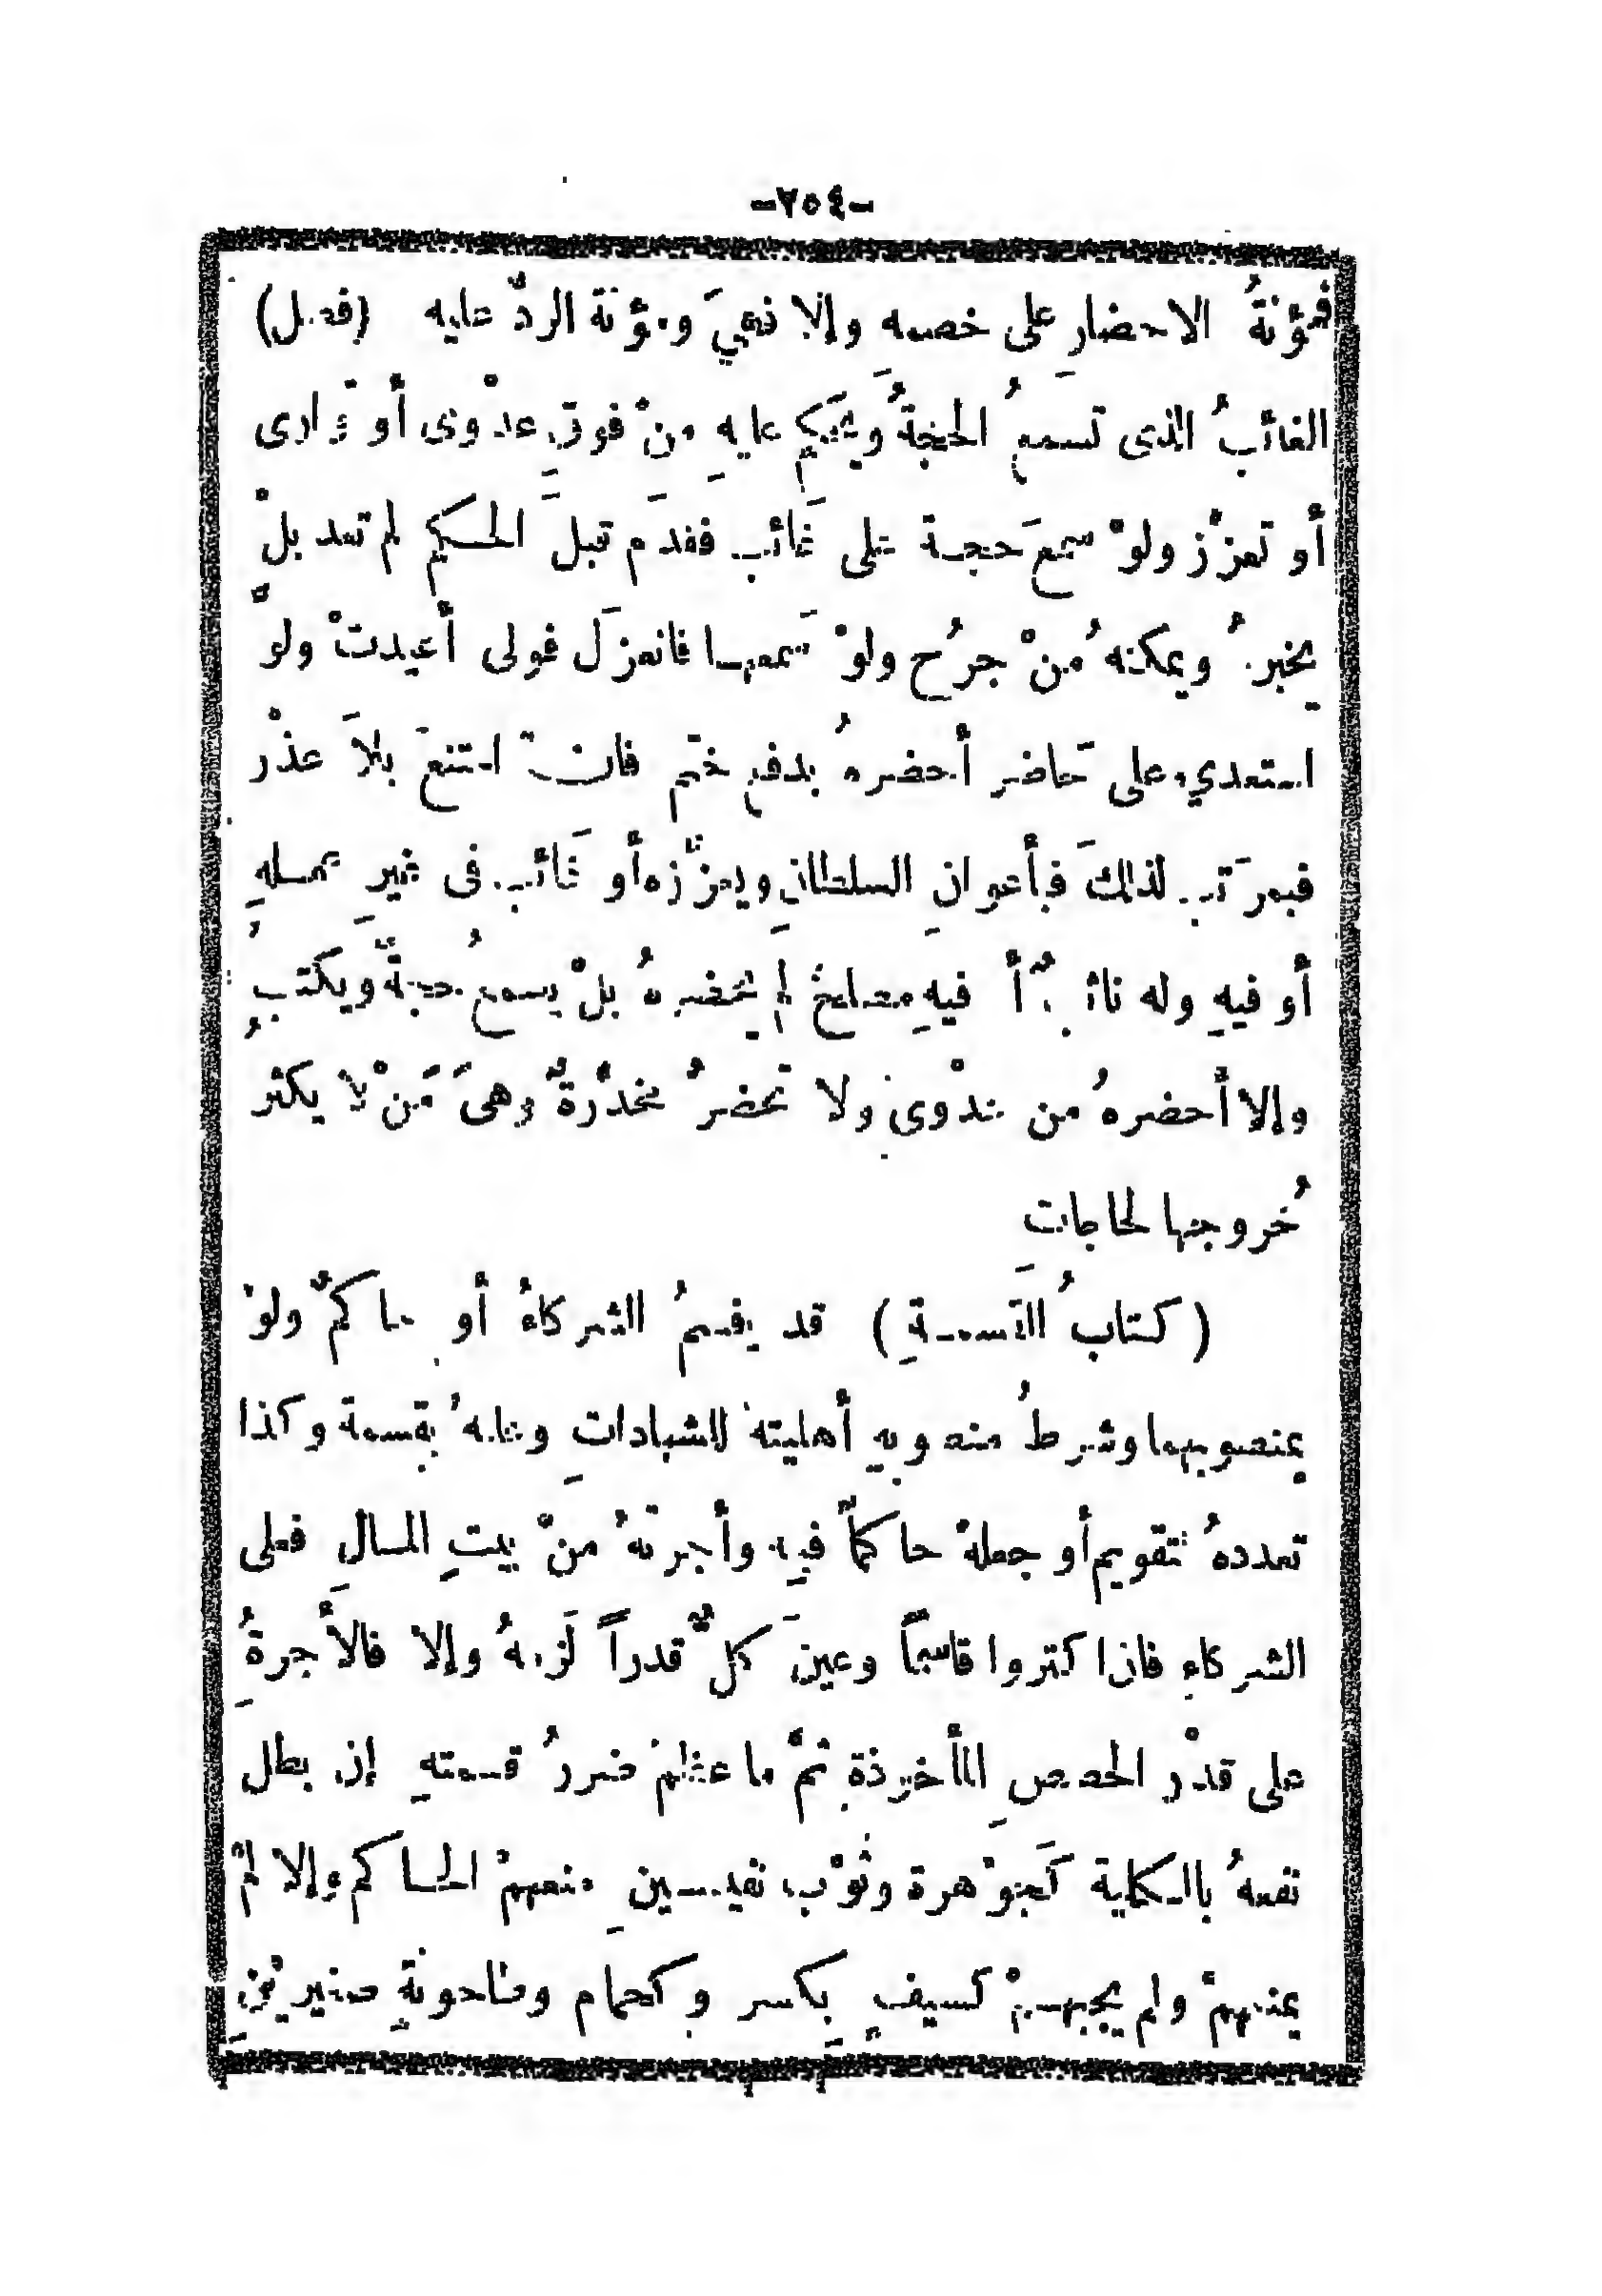 -٢٥٤-
فمؤنةُ الاحضارِ على خصمه وإلا فهيَ ومؤنة الردّ عليه (فصل)
الغائبُ الذى تسمعُ الحجةُ ويحكم عليهِ منْ فوقِ عدْوى أو توارى
أو تعزّز ولوْ سمعَ حجة على غائب فقدم قبلَ الحكم لم تعد بلْ
يخبرُ ويمكنهُ منْ جرُح ولوْ سمعها فانعزلَ فولى أعيدتْ ولوْ
استعدي على حاضر أحضرهُ بدفع ختم فان امتنعَ بلاَ عذْر
فبمرَتب لذلكَ فبأعوانِ السلطانِ ويعزّزه أو غائب فى غيرِ عملهِ
أو فيهِ وله نائبٌ أو فيهِ مصلحٌ لم يحضرهُ بلْ يسمعُ حجةً ويكتب
وإلا أحضرهُ من عدْوى ولا تحضرُ مخدّرةٌ وهىَ مَنْ لا يكثر
خُروجها لحاجاتِ
(كتابُ القسمةِ) قد يقسمُ الشركاءُ أو حاكمٌ ولوْ
بمنصوبهما وشرطُ منصوبهِ أهليتهُ للشهاداتِ وعلمهُ بقسمة وكذا
تعددهُ لتقويم أو جعلهُ حاكماً فيهِ وأجرتهُ منْ بيتِ المالِ فعلى
الشركاءِ فاذا كتروا قاسماً وعينَ كلٌّ قدراً لزمهُ وإلا فالأجرةُ
على قدْر الحصصِ المأخوذةِ ثمّ ما عظمَ ضررُ قسمتهِ إن بطل
نفعهُ بالكلية كجوْهرة وثوْب نفيسينِ منعهمْ الحاكم وإلا لمْ
يمنعهمْ ولم يجبهمْ كسيفٍ يكسر وكحمام وطاحونةٍ صغيريْنِ